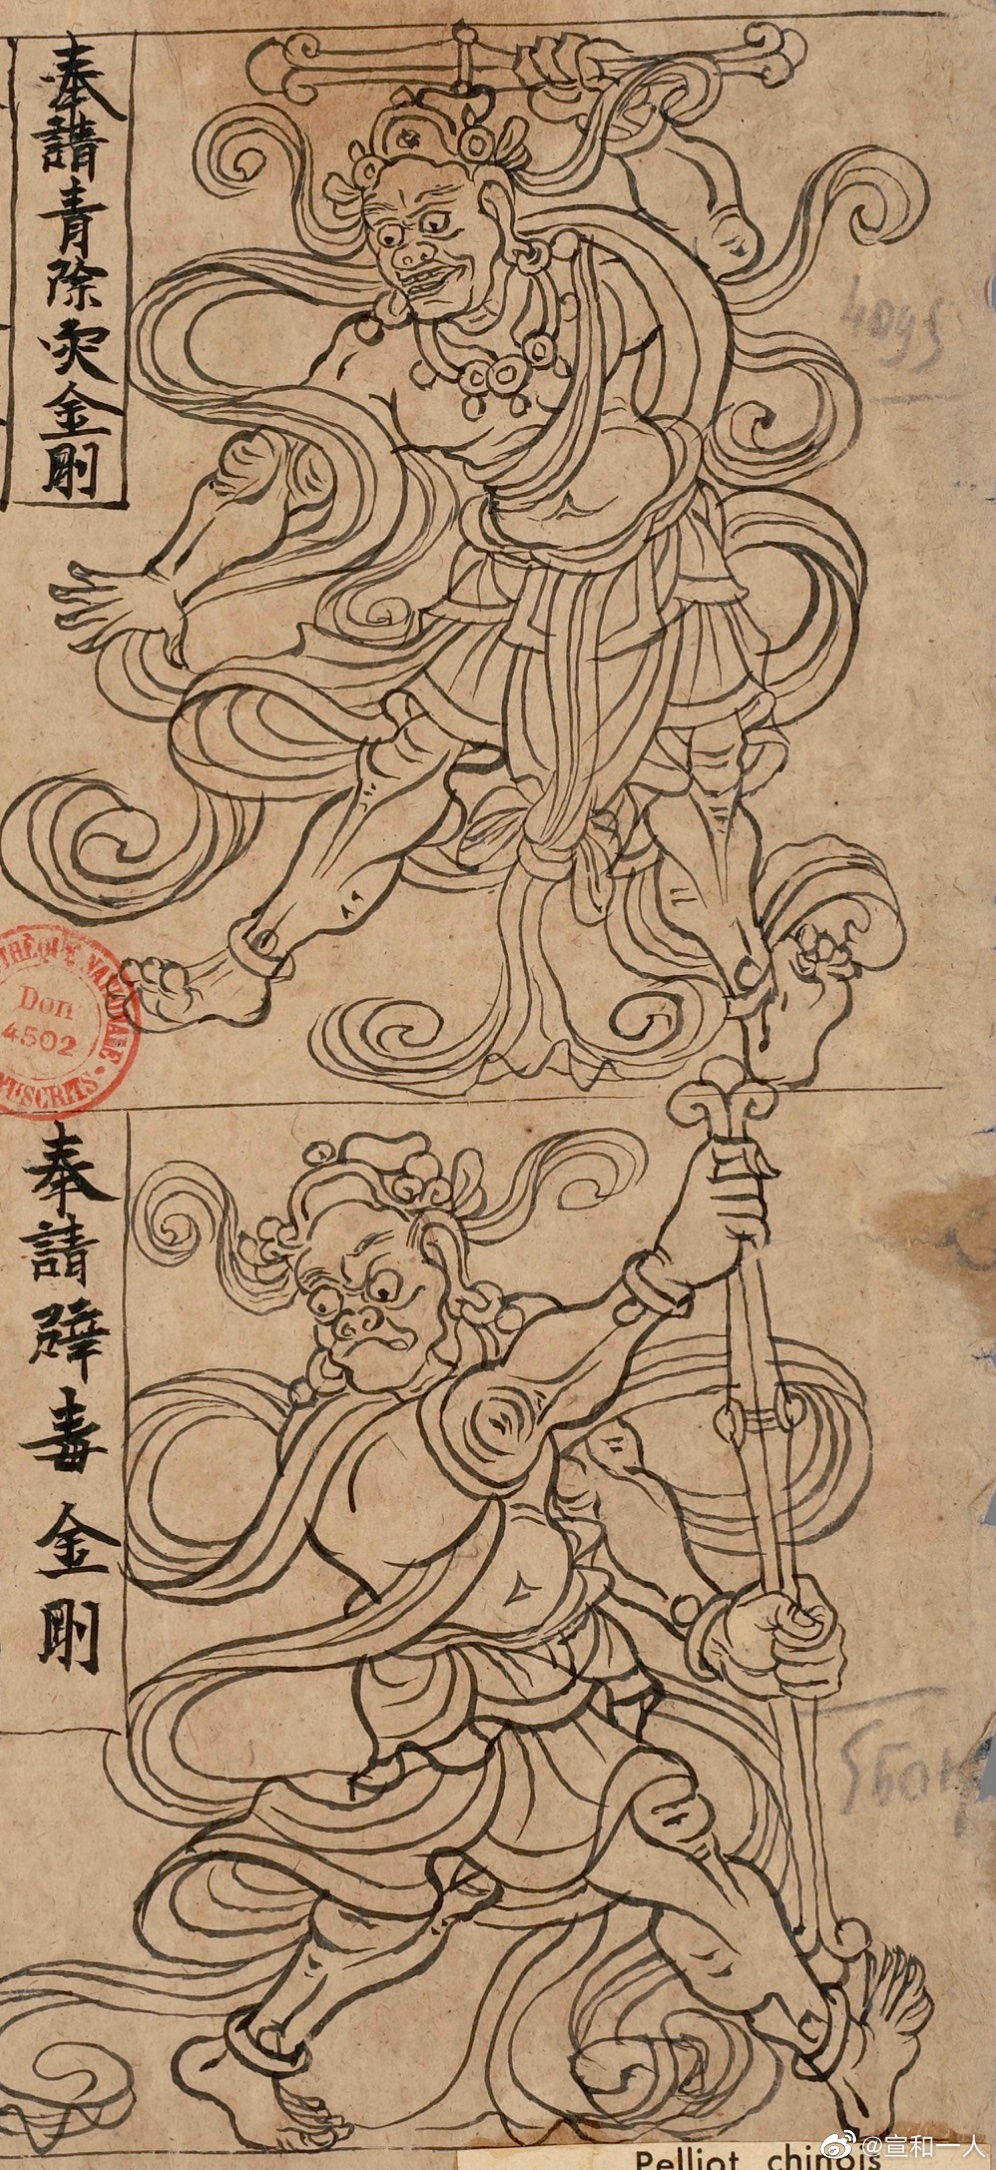 奉請青除灾金剛
奉請辟毒金剛
THÈQUE NATIONALE
Don
4502
NUSCRITS
Pelliot chinois
@宣和一人